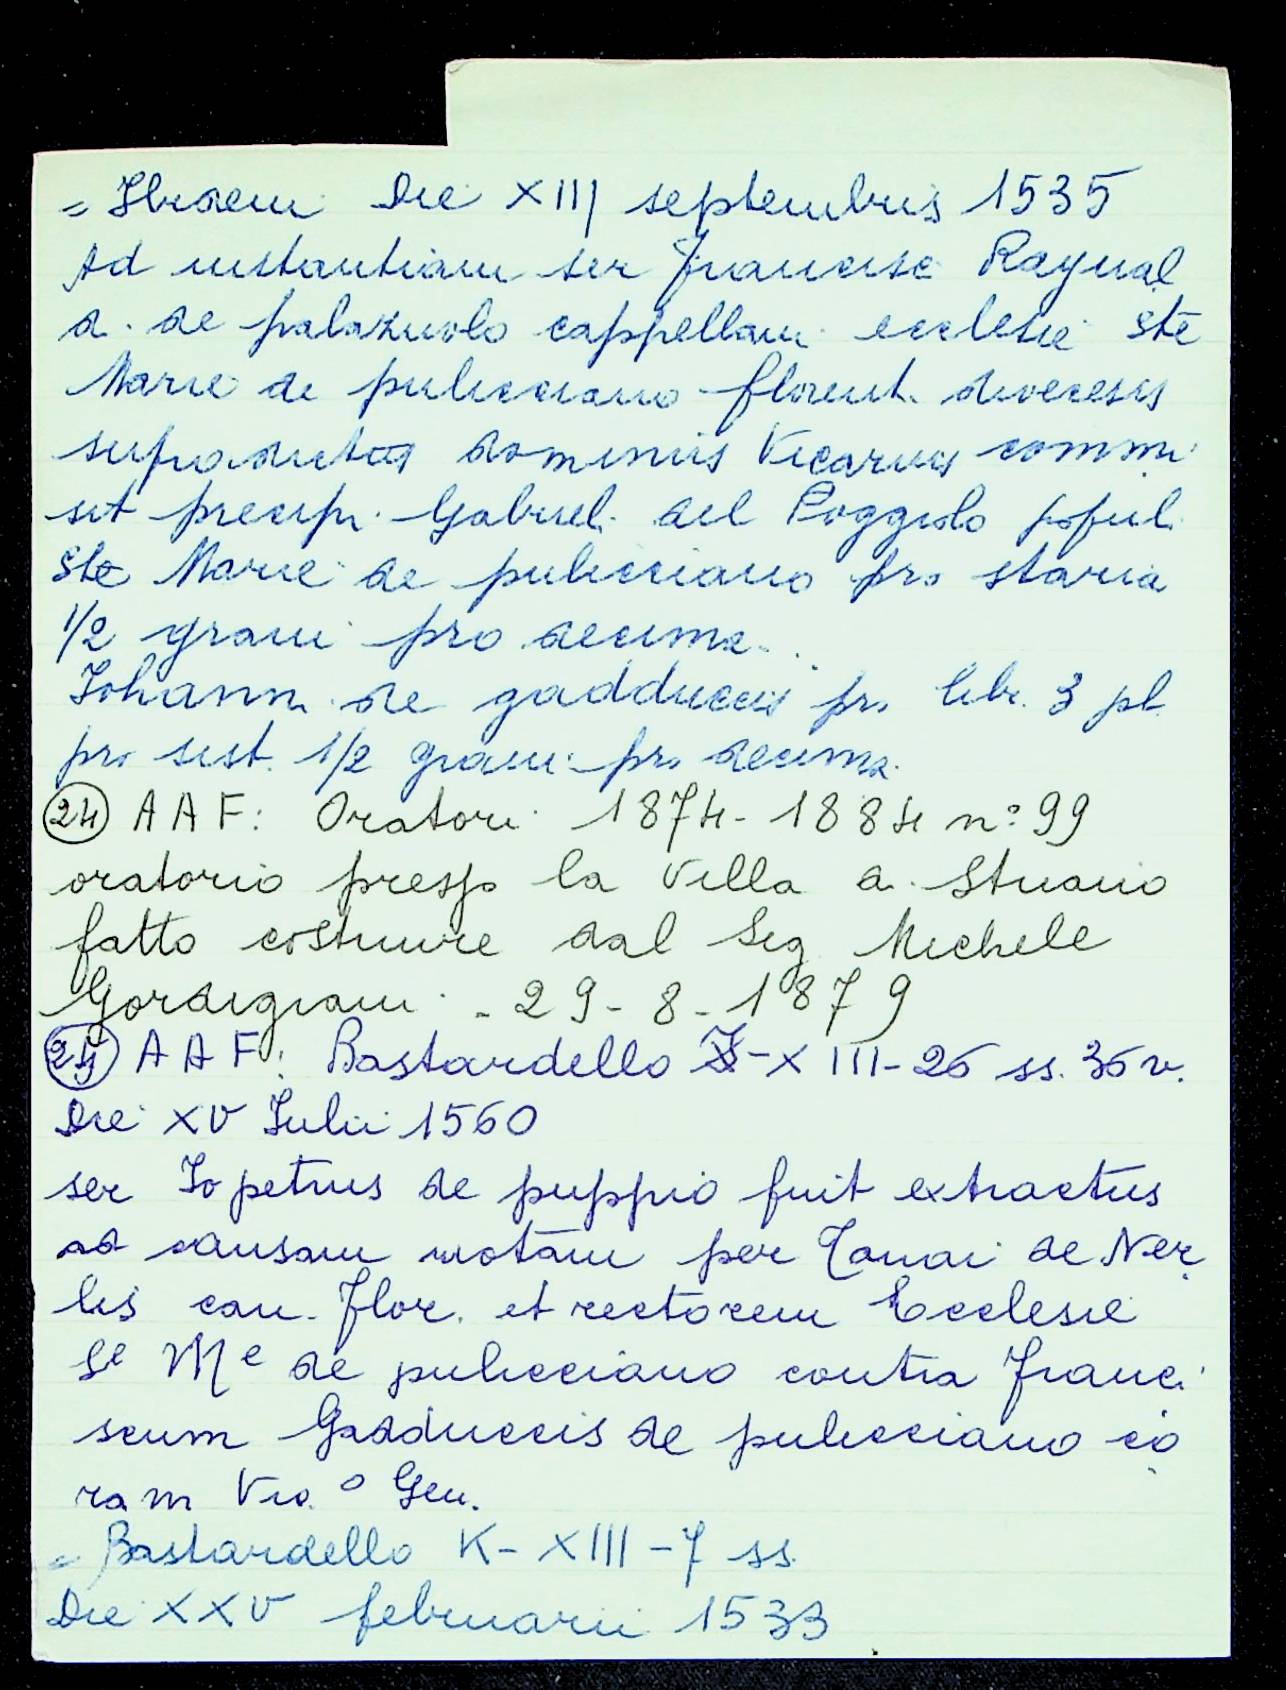 = Ibidem Die XIII septembris 1535
Ad instantiam ser Francisc Raynal
d. de palazuolo cappellani ecclesie Ste
Marie de pulicciano florent. diocesis
supradictus dominus Vicarius commi
sit precipi Gabriel. del Poggiolo popul.
Ste Marie de pulicciano pro staria
1/2 grani pro decima.
Johann. de gadduccis pro libr. 3 pl.
pro sist. 1/2 grani pro decima.
24 AAF: Oratori 1874-1884 n° 99
oratorio presso la Villa a Striano
fatto costruire dal Sig. Michele
Gordigiani - 29-8-1879
25 AAF: Bastardello I-XIII-26 ss. 36 v.
Die XV Iulii 1560
ser Io petrus de puppio fuit extractus
ad causam motam per Tanai de Ner
lis can. Flor. et rectorem Ecclesie
Se Me de pulicciano contra Franci
scum Gadduccis de pulicciano co
ram Vic.o Gen.
= Bastardello K-XIII-7 ss.
Die XXV februarii 1533